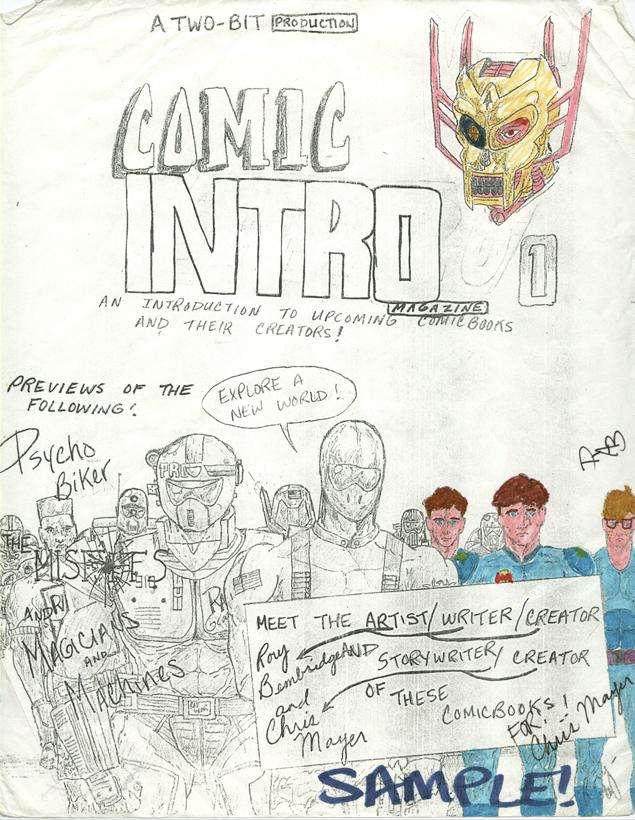 A TWO-BIT PRODUCTION
COMIC
INTRO
1
MAGAZINE
AN INTRODUCTION TO UPCOMING COMICBOOKS
AND THEIR CREATORS!
PREVIEWS OF THE
FOLLOWING:
EXPLORE A
NEW WORLD!
Psycho
Biker
THE
MISFITS
AND
MAGICIANS
AND
Machines
MEET THE ARTIST/WRITER/CREATOR
Rory
Bembridge AND STORYWRITER/CREATOR
and
Chris
Mayer
OF THESE
COMICBOOKS!
FOR:
Chris Mayer
SAMPLE!